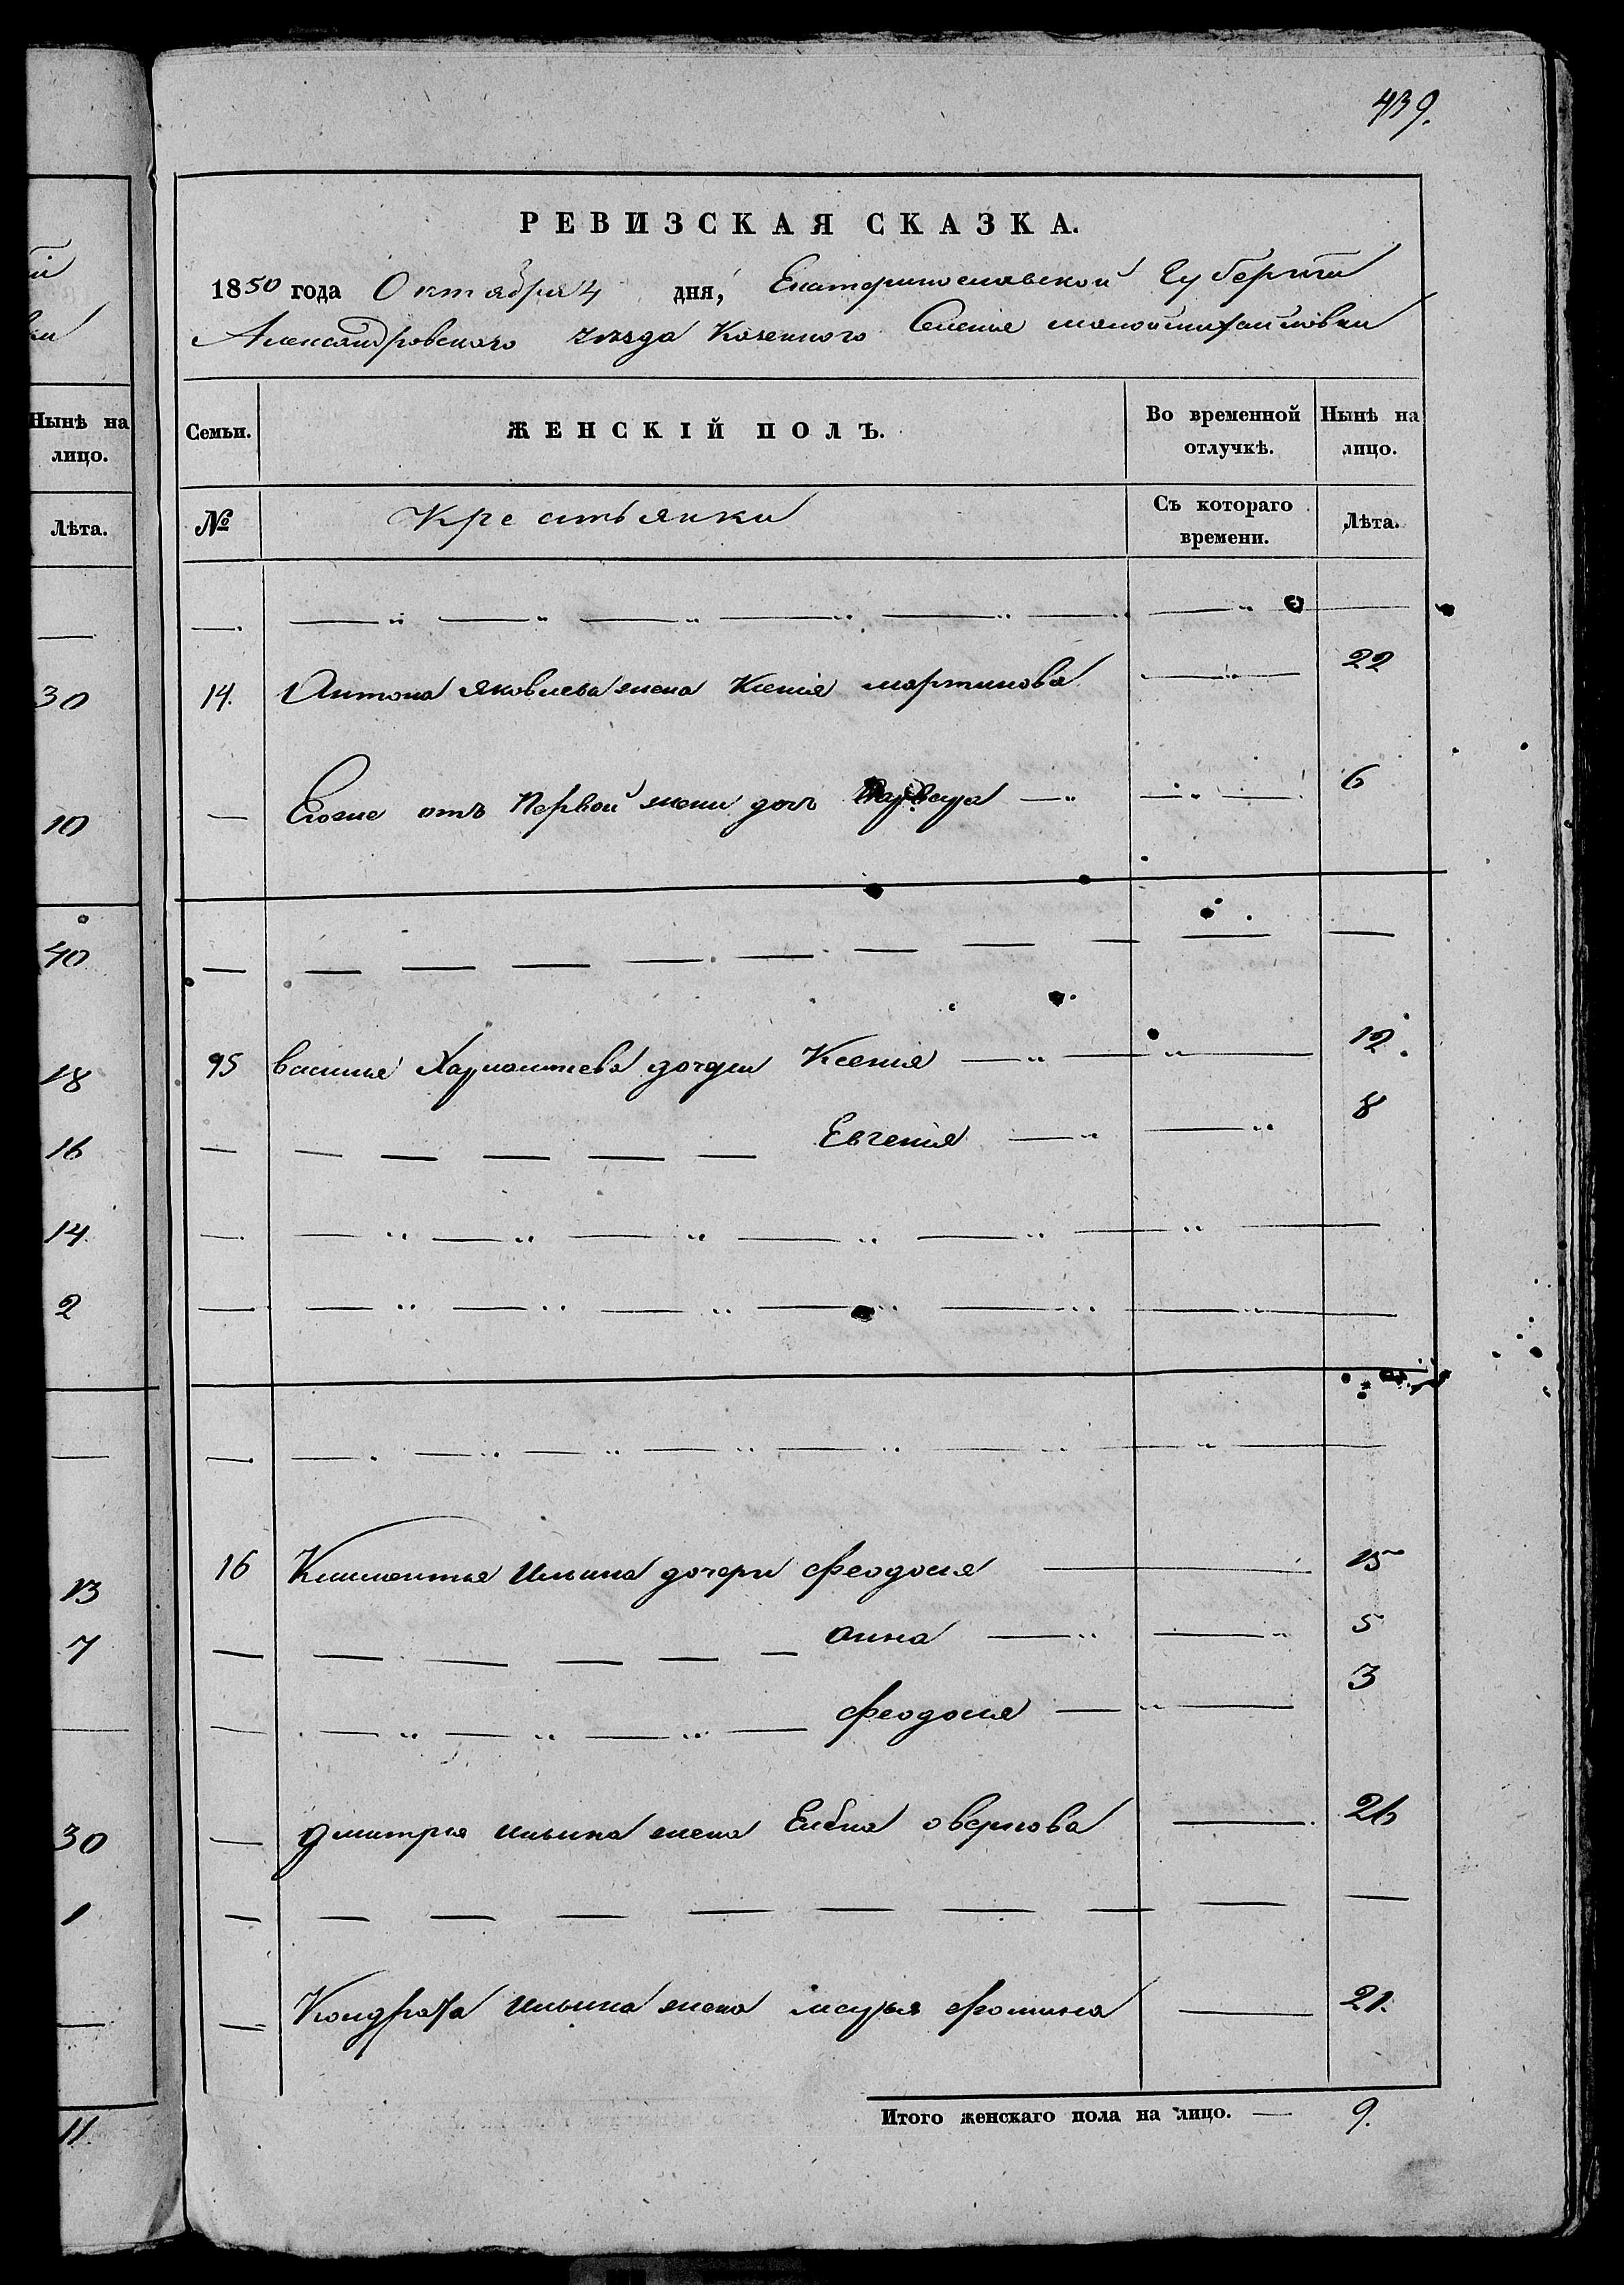 439.
РЕВИЗСКАЯ СКАЗКА.
1850 года Октября 4 дня, Екатеринославской Губернiи
Александровского уезда Казенного Селенiя малоймихайловки
Нынѣ на лицо.
Семьи. ЖЕНСКIЙ ПОЛЪ. Во временной отлучкѣ. Нынѣ на лицо.
Лѣта.
№ Крестьянки Съ котораго времени. Лѣта.
30 14. Антона Яковлева жена Ксенiя мартинова 22
10 Егоже отъ Первой жени дочъ 6
40
18 95 василья Харлантева дочери Ксенiя 12.
16 Евгенiя 8
14
2
13 16 Климентья Ильина дочери феодосия 15
7 анна 5
феодосия 3
30 дмитрiя ильина жена Елена 26
1
Кондрата Ильина жена марья фомина 21.
11. Итого женскаго пола на лицо. — 9.